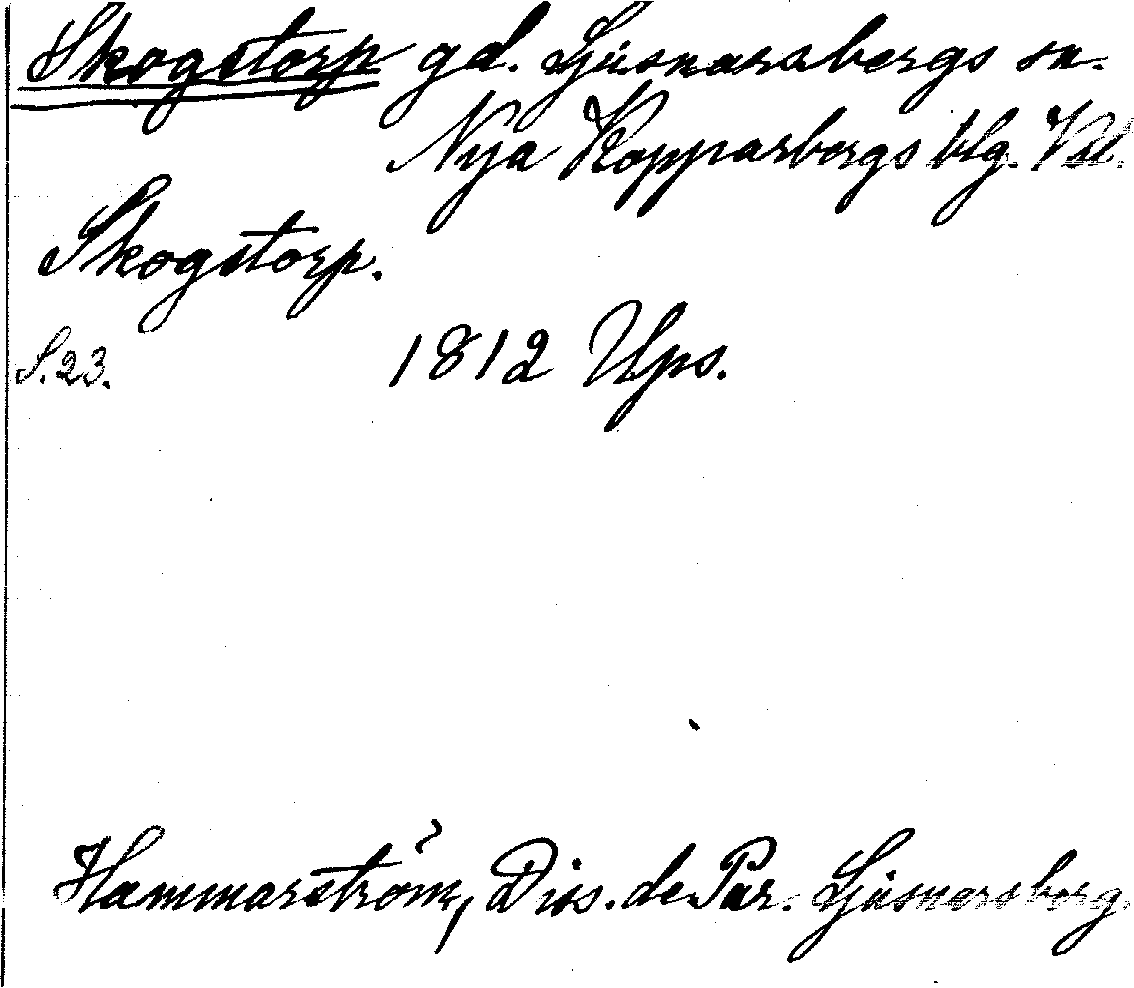 Skogstorp gd. Ljusnarsbergs sn.
Nya Kopparbergs blg. Vstl.
Skogstorp.
S. 23. 1812 Ups.
Hammarström, Diss. de Par. Ljusnersberg.